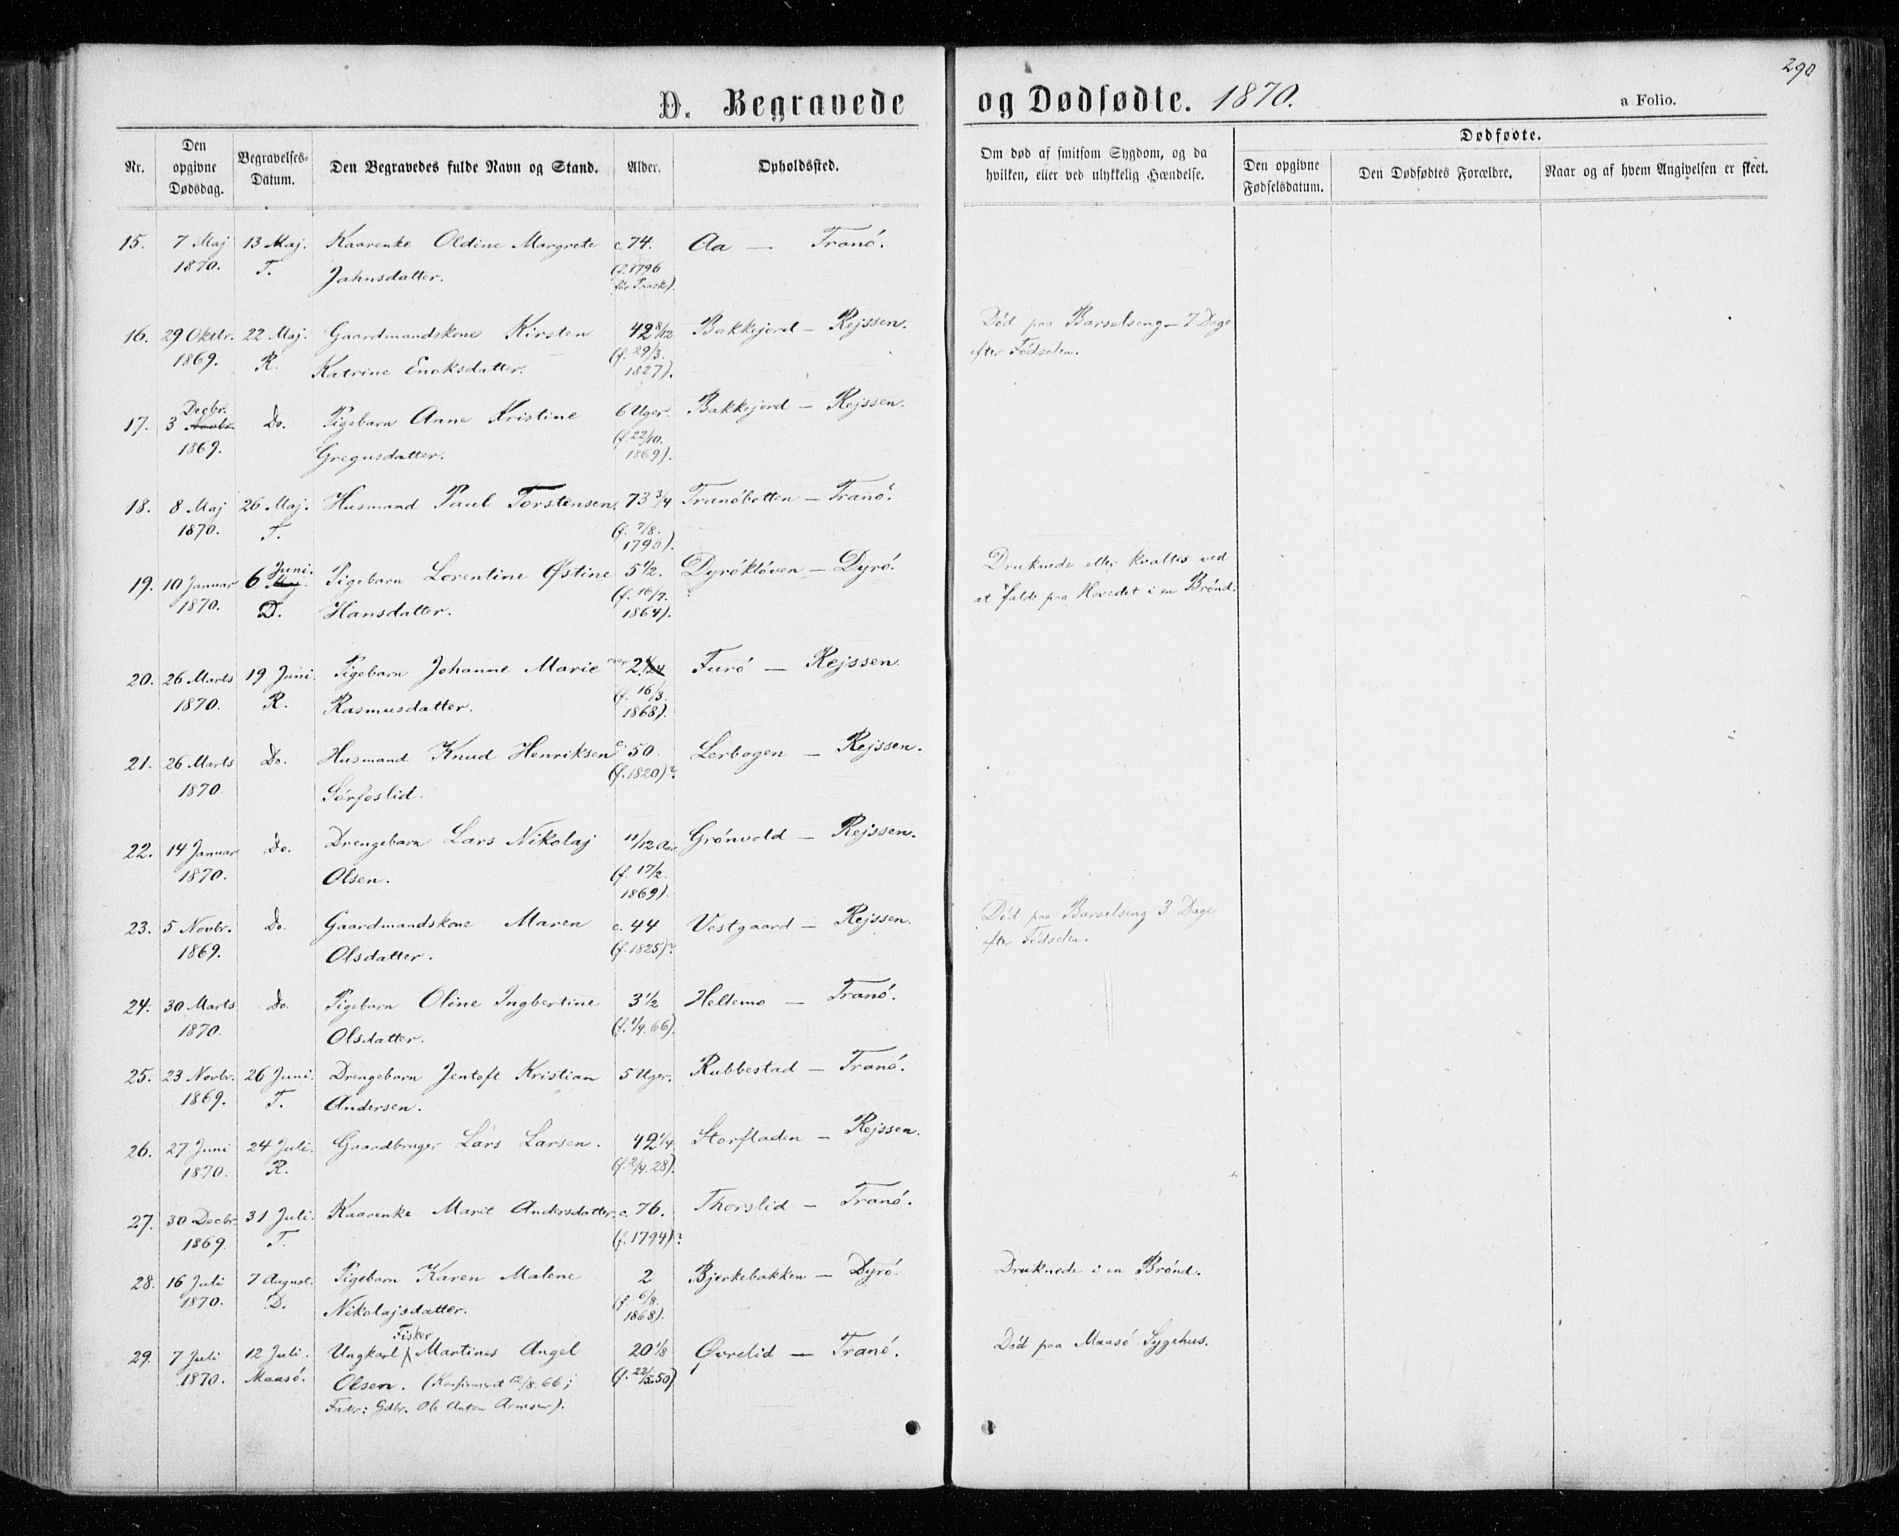 290
D. Begravede og Dødfødte. 1870.
a Folio.
Nr.
Den opgivne Dødsdag.
Begravelses-Datum.
Den Begravedes fulde Navn og Stand.
Alder.
Opholdssted.
Om død af smitsom Sygdom, og da hvilken, eller ved ulykkelig Hændelse.
Dødfødte.
Den opgivne Fødselsdatum.
Den Dødfødtes Forældre.
Naar og af hvem Angivelsen er skeet.
15. 7 Maj 13 Maj. Kaarenke Oldine Margrete c. 74. Aa — Tranö.
1870. T. Jahnsdatter. (f. 1796
før Paaske).
16. 29 Oktbr. 22 Maj. Gaardmandskone Kirsten 42 8/12 Bakkejord — Rejssen. Död paa Barselseng — 7 Dage
1869. R. Katrine Enoksdatter. (f. 29/3. 1827). efter Födselen.
Decbr.
17. 3 Novbr. Do. Pigebarn Anne Kristine 6 Uger. Bakkejord — Rejssen.
1869. Gregusdatter. (f. 22/10. 1869).
18. 8 Maj 26 Maj. Husmand Paul Torstensen. 73 3/4 Tranöbotten — Tranö.
1870. T. (f. 7/8. 1790).
Juni.
19. 10 Januar 6 Maj Pigebarn Lorentine Østine 5 1/2. Dyröklöven — Dyrö. Druknede eller kvaltes ved
1870. D. Hansdatter. (f. 10/7. 1864). at falde paa Hovedet i en Brönd.
20. 26 Marts 19 Juni. Pigebarn Johanne Marie 2 Furö — Rejssen.
1870. R. Rasmusdatter. (f. 16/3. 1868).
21. 26 Marts Do. Husmand Knud Henriksen c. 50. Lerbogen — Rejssen.
1870. Sörfoslid. (f. 1820)?
22. 14 Januar Do. Drengebarn Lars Nikolaj 11/12 Aar Grönvold — Rejssen.
1870. Olsen. (f. 17/2. 1869).
23. 5 Novbr. Do. Gaardmandskone Maren c. 44 Vestgaard — Rejssen. Död paa Barselseng 3 Dage
1869. Olsdatter. (f. 1825)? efter Födselen.
24. 30 Marts Do. Pigebarn Oline Ingbertine 3 1/2 Heltemo — Tranö.
1870. Olsdatter. (f. 1/9. 66).
25. 23 Novbr. 26 Juni. Drengebarn Jentoft Kristian 5 Uger. Rubbestad — Tranö.
1869. T. Andersen.
26. 27 Juni 24 Juli. Gaardbruger Lars Larsen. 42 1/4. Storfladen — Rejssen.
1870. R. (f. 2/4. 28).
27. 30 Decbr. 31 Juli. Kaarenke Marit Andersdatter. c. 76. Thorslid — Tranö.
1869. T. (f. 1794)?
28. 16 Juli 7 August. Pigebarn Karen Malene 2 Bjerkebakken — Dyrö. Druknede i en Brönd.
1870. D. Nikolajsdatter. (f. 6/8. 1868).
Fisker
29. 7 Juli 12 Juli. Ungkarl Martines Angel 20 1/8 Øvrelid — Tranö. Död paa Maasö Sygehus.
1870. Maasö. Olsen. (Konfirmeret 12/8. 66; (f. 22/5. 50)
Fader: Gdbr. Ole Anton Arnesen).